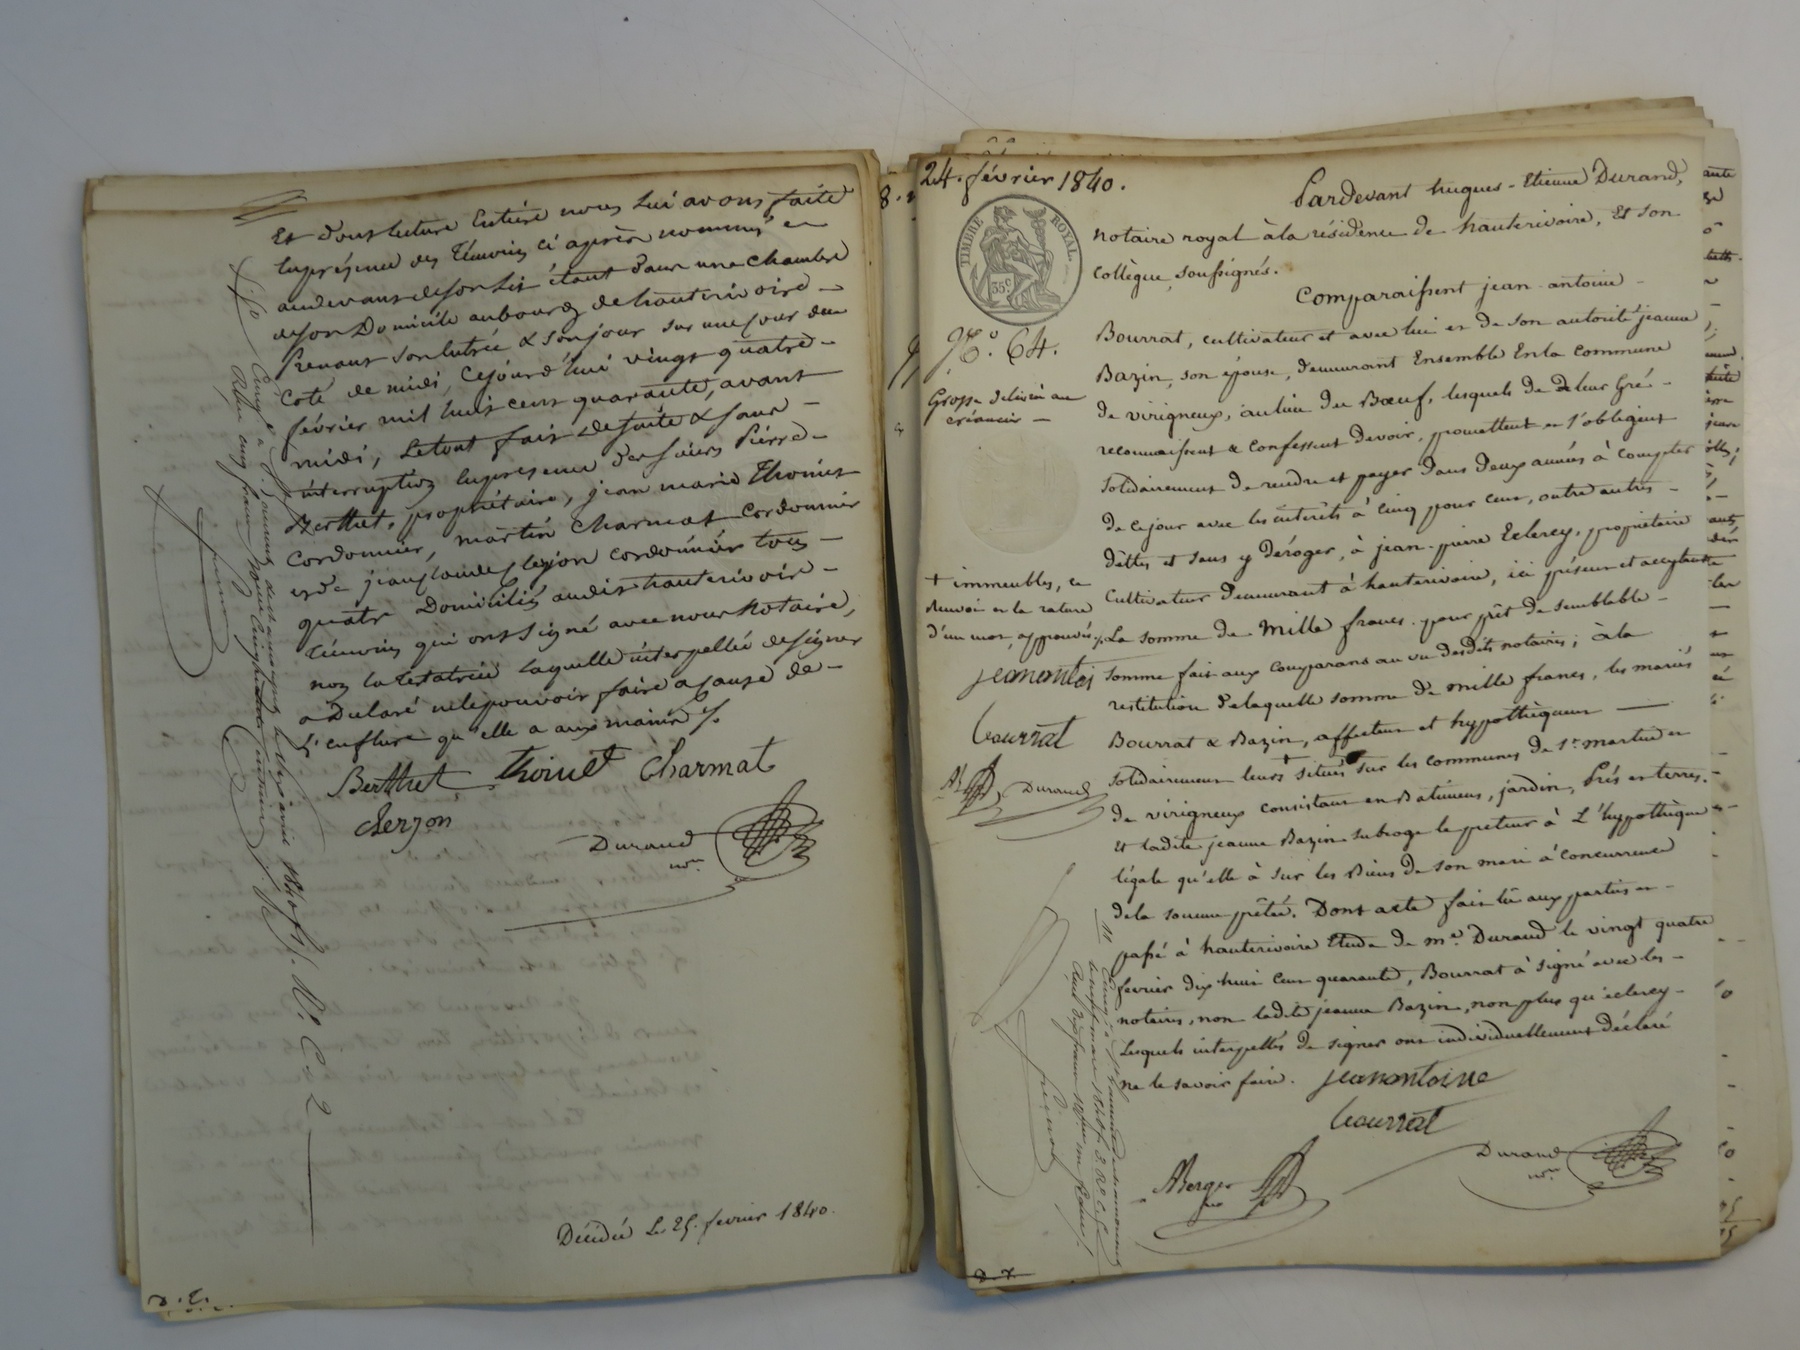 Et dont lecture entière nous lui avons faite
en présence des témoins ci après nommés et
au devant de son lit étant dans une chambre
de son Domicile au bourg de hauterivoire –
Prenant son entrée & son jour sur une cour du
coté de midi, cejourd'hui vingt quatre –
février mil huit cent quarante, avant
midi, le tout fait de suite & sans –
interruption en présence des sieurs Pierre –
Berthet, propriétaire, jean marie Thoinet
cordonnier, martin Charmat cordonnier
et de jean claude cordonnier tous –
quatre Domiciliés audit hauterivoire –
témoins qui ont signé avec nous Notaire,
non la testatrice laquelle interpellée de signer
a Déclaré ne le pouvoir faire a cause de –
L'enflure qu'elle a aux mains ./.
Berthet Thoinet Charmat
Durand
nre
Décidée Le 25. fevrier 1840.
24. février 1840.
TIMBRE ROYAL.
35c
No. 64.
Grosse delivrée au
créancier –
+ immeubles, ce
renvoi et la rature
d'un mot, approuvés ./.
jeanantoi
bourrat
Durand
Pardevant hugues - Etienne Durand,
notaire royal à la résidence de hauterivoire, Et son
collègue, soussignés.
Comparaissent jean antoine –
Bourrat, cultivateur et avec lui et de son autorité jeanne
Bazin, son épouse, demeurant Ensemble En la commune
de virigneux, au lieu du Bœuf, lesquels de leur Gré –
reconnaissent & confessent devoir, promettent et s'obligent
solidairement de rendre et payer dans deux années à compter
de ce jour avec les intérêts à Cinq pour cent, outre autres –
dettes et sans y déroger, à jean-pierre Eclercy, propriétaire
cultivateur demeurant à hauterivoire, ici présent et acceptant
La somme de Mille francs pour prêt de semblable –
somme fait aux comparans au vu desdits notaires; à la
restitution de laquelle somme de mille francs, les mariés
Bourrat & Bazin, affectent et hypothèquent
solidairement leurs + situés sur les communes de St martin et
de virigneux consistant en Batimens, jardin, Prés et terres.
Et ladite jeanne Bazin subroge le preteur à L'hypothèque
légale qu'elle à sur les Biens de son mari à concurrence
de la somme prêtée. Dont acte fait lu aux parties et –
passé à hauterivoire Etude de me. Durand le vingt quatre
fevrier dix huit cent quarante, Bourrat à signé avec les –
notaires, non ladite jeanne Bazin, non plus qu'eclercy –
Lesquels interpellés de signer ont individuellement déclaré
ne le savoir faire. jeanantoine
bourrat
Durand
nre
Berger
nre